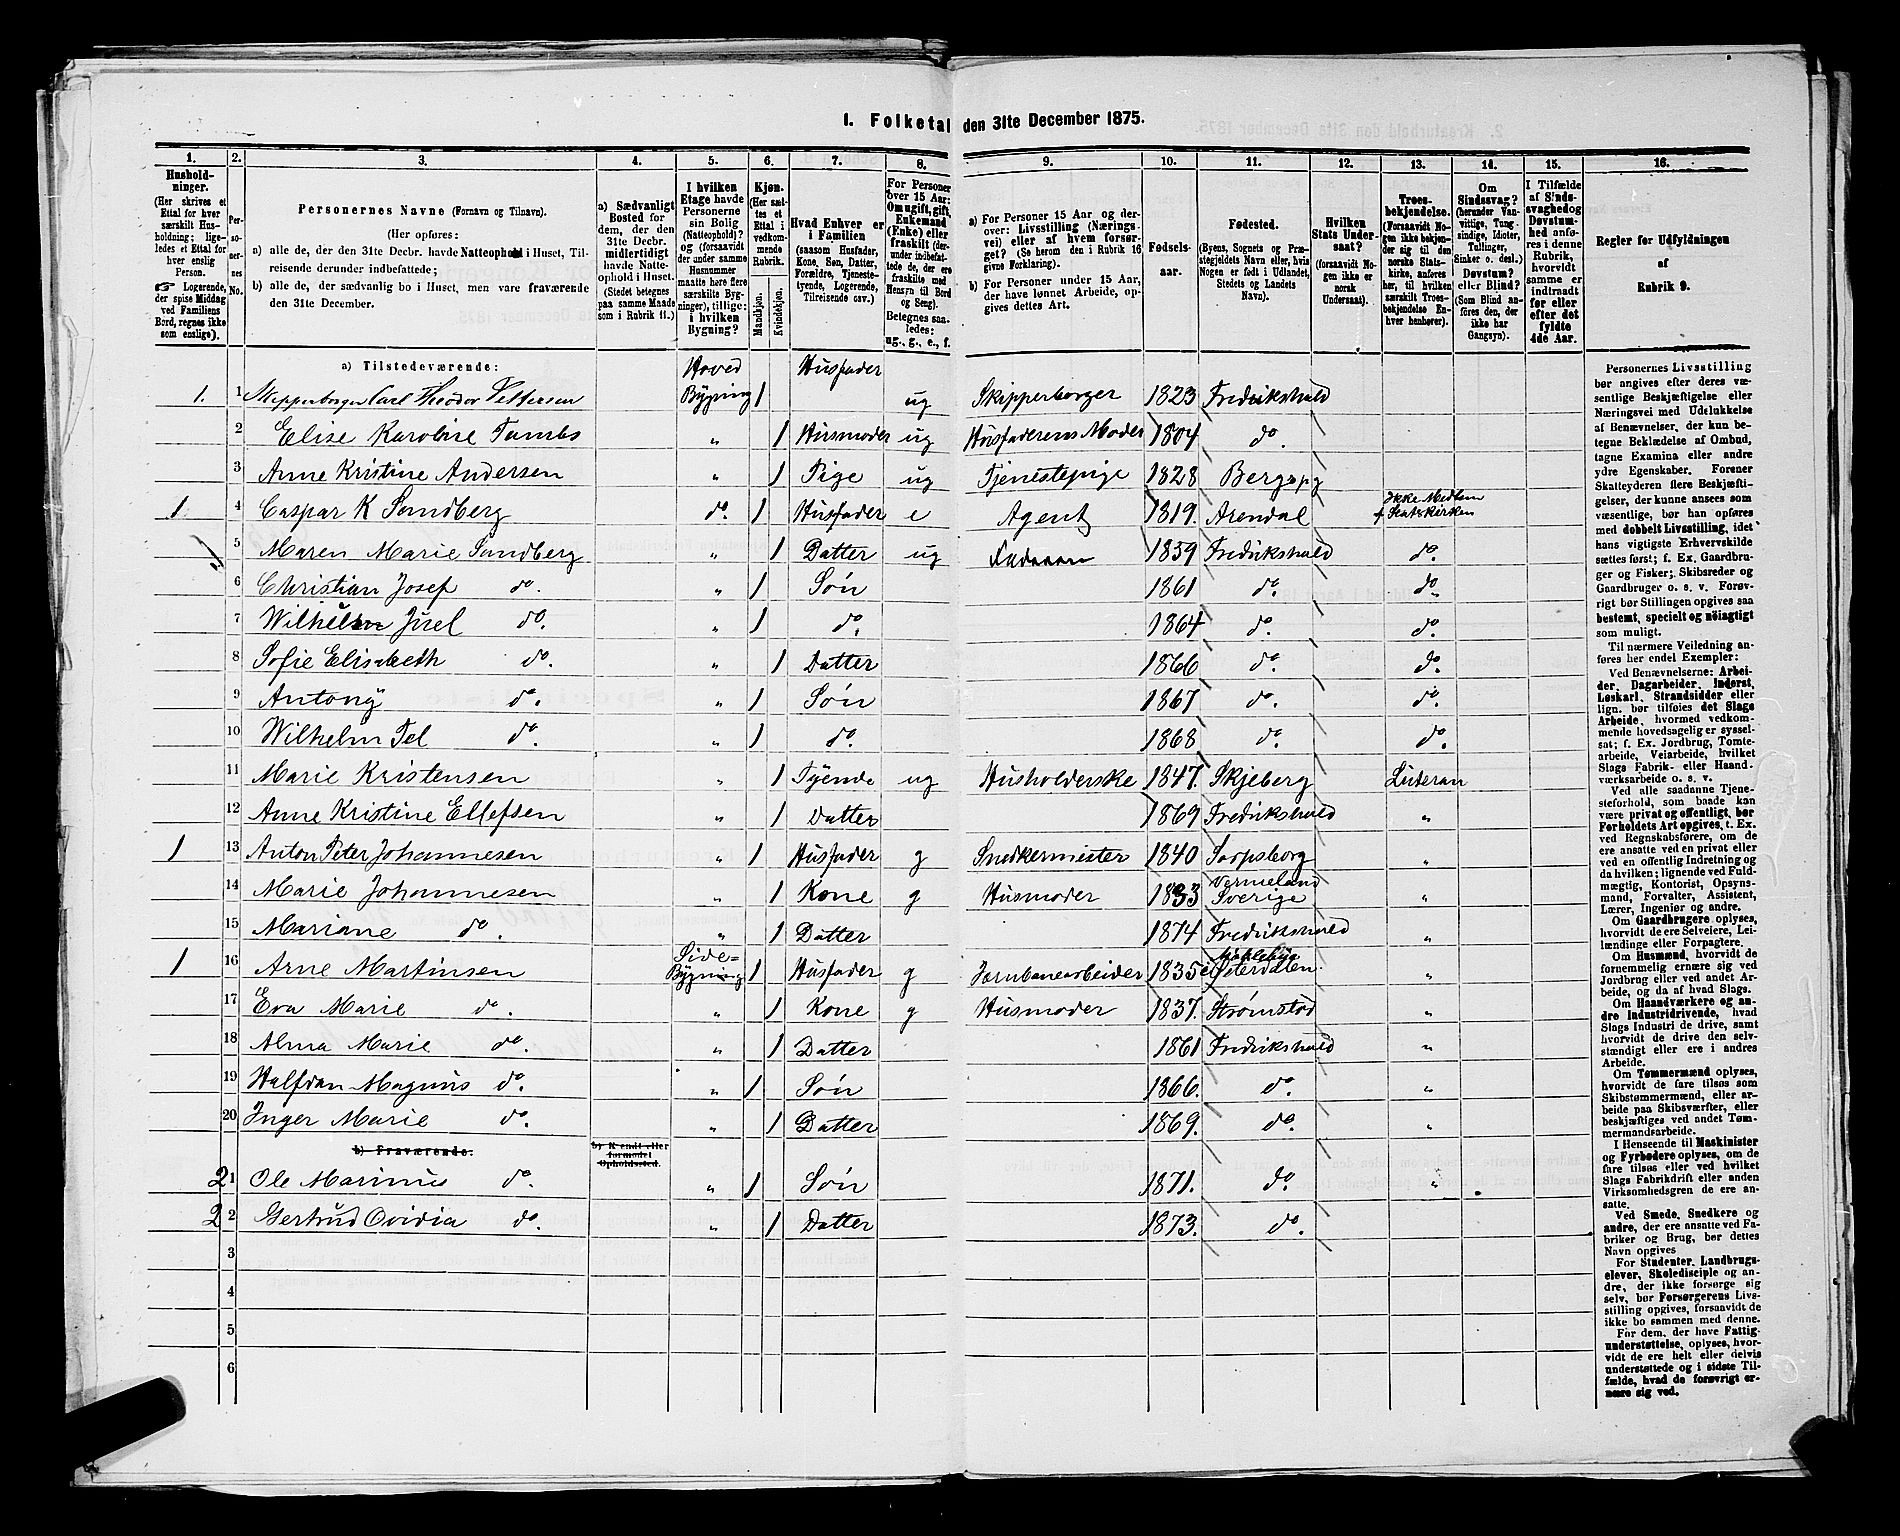 1. Folketal den 31te December 1875.
1. 2. 3. 4. 5. 6. 7. 8. 9. 10. 11. 12. 13. 14. 15. 16.
Hushold-
ninger.
(Her skrives et
Ettal for hver
særskilt Hus-
holdning; lige-
ledes et Ettal for
hver enslig
Person.
☞ Logerende,
der spise Middag
ved Familiens
Bord, regnes ikke
som enslige).
Per-
so-
ner-
nes
No.
Personernes Navne (Fornavn og Tilnavn).
(Her opføres:
a) alle de, der den 31te Decbr. havde Natteophold i Huset, Til-
reisende derunder indbefattede;
b) alle de, der sædvanlig bo i Huset, men vare fraværende
den 31te December.
a) Sædvanligt
Bosted for
dem, der den
31te Decbr.
midlertidigt
havde Natte-
ophold i Huset.
(Stedet betegnes
paa samme Maade
som i Rubrik 11.)
I hvilken
Etage havde
Personerne
sin Bolig
(Natteophold)?
og (forsaavidt
der under samme
Husnummer
maatte høre flere
særskilte Byg-
ninger), tillige:
i hvilken
Bygning?
Kjøn.
(Her sæt-
tes et
Ettal i
vedkom-
mende
Rubrik.
Mandkjøn.
Kvindekjøn.
Hvad Enhver er
i Familien
(saasom Husfader,
Kone, Søn, Datter,
Forældre, Tjeneste-
tyende, Logerende,
Tilreisende osv.)
For Personer
over 15 Aar:
Om ugift, gift,
Enkemand
(Enke) eller
fraskilt (der-
under indbefat-
tede de, der ere
fraskilte med
Hensyn til Bord
og Seng).
Betegnes saa-
ledes:
ug., g., e., f.
a) For Personer 15 Aar og der-
over: Livsstilling (Nærings-
vei) eller af hvem forsør-
get? (Se herom den i Rubrik 16
givne Forklaring).
b) For Personer under 15 Aar,
der have lønnet Arbeide, op-
gives dettes Art.
Fødsels-
aar.
Fødested.
(Byens, Sognets og Præ-
stegjeldets Navn eller, hvis
Nogen er født i Udlandet,
Stedets og Landets
Navn).
Hvilken
Stats Under-
saat?
(forsaavidt No-
gen ikke er
norsk
Undersaat).
Troes-
bekjendelse.
(Forsaavidt No-
gen ikke bekjen-
der sig til den
norske Stats-
kirke, anføres
her, til hvilken
særskilt Troes-
bekjendelse En-
hver henhører).
Om
Sindssvag?
(herunder Van-
vittige, Tung-
sindige, Idioter,
Tullinger,
Sinker o. desl.)
Døvstum?
eller Blind?
(Som Blind an-
føres den, der
ikke har
Gangsyn).
I Tilfælde
af Sinds-
svaghed og
Døvstum-
hed anfø-
res i denne
Rubrik,
hvorvidt
samme er
indtraadt
før eller
efter det
fyldte
4de Aar.
Regler for Udfyldningen
af
Rubrik 9.
a) Tilstedeværende:
1. 1 Skipperborger Carl Theodor Pettersen Hoved Bygning 1 Husfader ug Skipperborger 1823 Fredrikshald
2 Elise Karoline Tambs „ 1 Husmoder ug Husfaderens Moder 1804 do.
3 Anne Kristine Andersen „ 1 Pige ug Tjenestepige 1828 Berg
1 4 Caspar K Sandberg do. 1 Husfader e Agent 1819. Arendal Ikke Medlem f Statskirken
5 Maren Marie Sandberg „ 1 Datter ug 1859 Fredrikshald do.
6 Christian Josef do. „ 1 Søn 1861 do. do.
7 Wilhelm Juel do. „ 1 do. 1864 do. do.
8 Sofie Elisabeth do. „ 1 Datter 1866 do. do.
9 Antony do. „ 1 Søn 1867 do. do.
10 Wilhelm Tel do. „ 1 do. 1868 do. do.
11 Marie Kristensen „ 1 Tyende ug Husholderske 1847. Skjeberg Luteran
12 Anne Kristine Ellefsen „ 1 Datter 1869 Fredrikshald „
1 13 Anton Peter Johannesen „ 1 Husfader g Snedkermester 1840 Sarpsborg „
14 Marie Johannesen „ 1 Kone g Husmoder 1833 Vermeland Sverige „
15 Mariane do. „ 1 Datter 1874 Fredrikshald „
1 16 Arne Martinsen Side= Bygning 1 Husfader g Jernbanearbeider 1835 „
17 Eva Marie do. „ 1 Kone g Husmoder 1837. Strømstod „
18 Alma Marie do. „ 1 Datter 1861 Fredrikshald „
19 Halfdan Magnus do. „ 1 Søn 1866. do. „
20 Inger Marie do. „ 1 Datter 1869. do. „
b) Fraværende. b) Kjendt eller formodet Opholdssted.
21 Ole Marinus do. „ 1 Søn 1871. do. „
22 Gertrud Ovidia do. „ 1 Datter 1873. do.
3
4
5
6
Personernes Livsstilling
bør angives efter deres væ-
sentlige Beskjæftigelse eller
Næringsvei med Udelukkelse
af Benævnelser, der kun be-
tegne Beklædelse af Ombud,
tagne Examina eller andre
ydre Egenskaber. Forener
Skatteyderen flere Beskjæfti-
gelser, der kunne ansees som
væsentlige, bør han opføres
med dobbelt Livsstilling, idet
hans vigtigste Erhvervskilde
sættes først; f. Ex. Gaardbru-
ger og Fisker; Skibsreder og
Gaardbruger o. s. v. Forøv-
rigt bør Stillingen opgives saa
bestemt, specielt og nøiagtigt
som muligt.
Til nærmere Veiledning an-
føres her endel Exempler:
Ved Benævnelserne: Arbei-
der, Dagarbeider, Inderst,
Løskarl, Strandsidder eller
lign. bør tilføies det Slags
Arbeide, hvormed vedkom-
mende hovedsagelig er syssel-
sat; f. Ex. Jordbrug, Tomte-
arbeide, Veiarbeide, hvilket
Slags Fabrik- eller Haand-
værksarbeide o. s. v.
Ved alle saadanne Tjene-
steforhold, som baade kan
være privat og offentligt, bør
Forholdets Art opgives, t. Ex.
ved Regnskabsførere, om de
ere ansatte ved en privat eller
ved en offentlig Indretning og
da hvilken; lignende ved Fuld-
mægtig, Kontorist, Opsyns-
mand, Forvalter, Assistent,
Lærer, Ingeniør og andre.
Om Gaardbrugere oplyses,
hvorvidt de ere Selveiere, Lei-
lændinge eller Forpagtere.
Om Husmænd, hvorvidt de
fornemmelig ernære sig ved
Jordbrug eller ved andet Ar-
beide, og da af hvad Slags.
Om Haandværkere og an-
dre Industridrivende, hvad
Slags Industri de drive, samt
hvorvidt de drive den selv-
stændigt eller ere i andres
Arbeide.
Om Tømmermænd oplyses,
hvorvidt de fare tilsøs som
Skibstømmermænd, eller ar-
beide paa Skibsværfter, eller
beskjæftiges ved andet Tøm-
mermandsarbeide.
I Henseende til Maskinister
og Fyrbødere oplyses, om de
fare tilsøs eller ved hvilket
Slags Fabrikdrift eller anden
Virksomhedsgren de ere an-
satte.
Ved Smede, Snedkere og
andre, der ere ansatte ved Fa-
briker og Brug, bør dettes
Navn opgives
For Studenter, Landbrugs-
elever, Skoledisciple og an-
dre, der ikke forsørge sig
selv, bør Forsørgerens Livs-
stilling opgives, forsaavidt de
ikke bo sammen med denne.
For dem, der have Fattig-
understøttelse, oplyses, hvor-
vidt de ere helt eller delvis
understøttede og i sidste Til-
fælde, hvad de forøvrigt er-
nære sig ved.